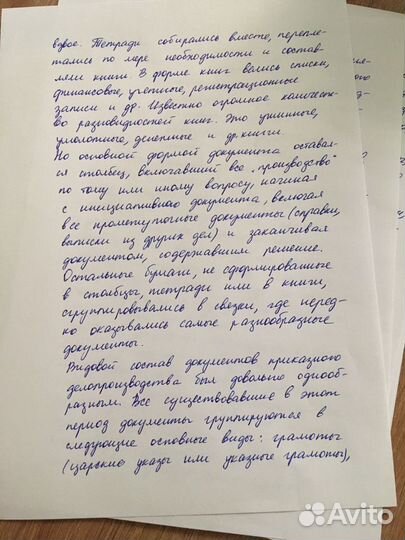 вдвое. Тетради собирались вместе, перепле-
тались по мере необходимости и состав-
ляли книги. В форме книг велись списки,
финансовые, учетные, регистрационные
записи и др. Известно огромное количест-
во разновидностей книг. Это ужинные,
умолотные, денежные и др. книги.
Но основной формой документа оставал-
ся столбец, включавший все "производство"
по тому или иному вопросу, начиная
с инициативного документа, включая
все промежуточные документы (справки,
выписки из других дел) и заканчивая
документом, содержавшим решение.
Остальные бумаги, не сформированные
в столбцы, тетради или в книги,
сгруппировывались в связки, где неред-
ко оказывались самые разнообразные
документы.
Видовой состав документов приказного
делопроизводства был довольно однооб-
разным. Все существовавшие в этот
период документы группируются в
следующие основные виды: грамоты
(царские указы или указные грамоты),
Avito